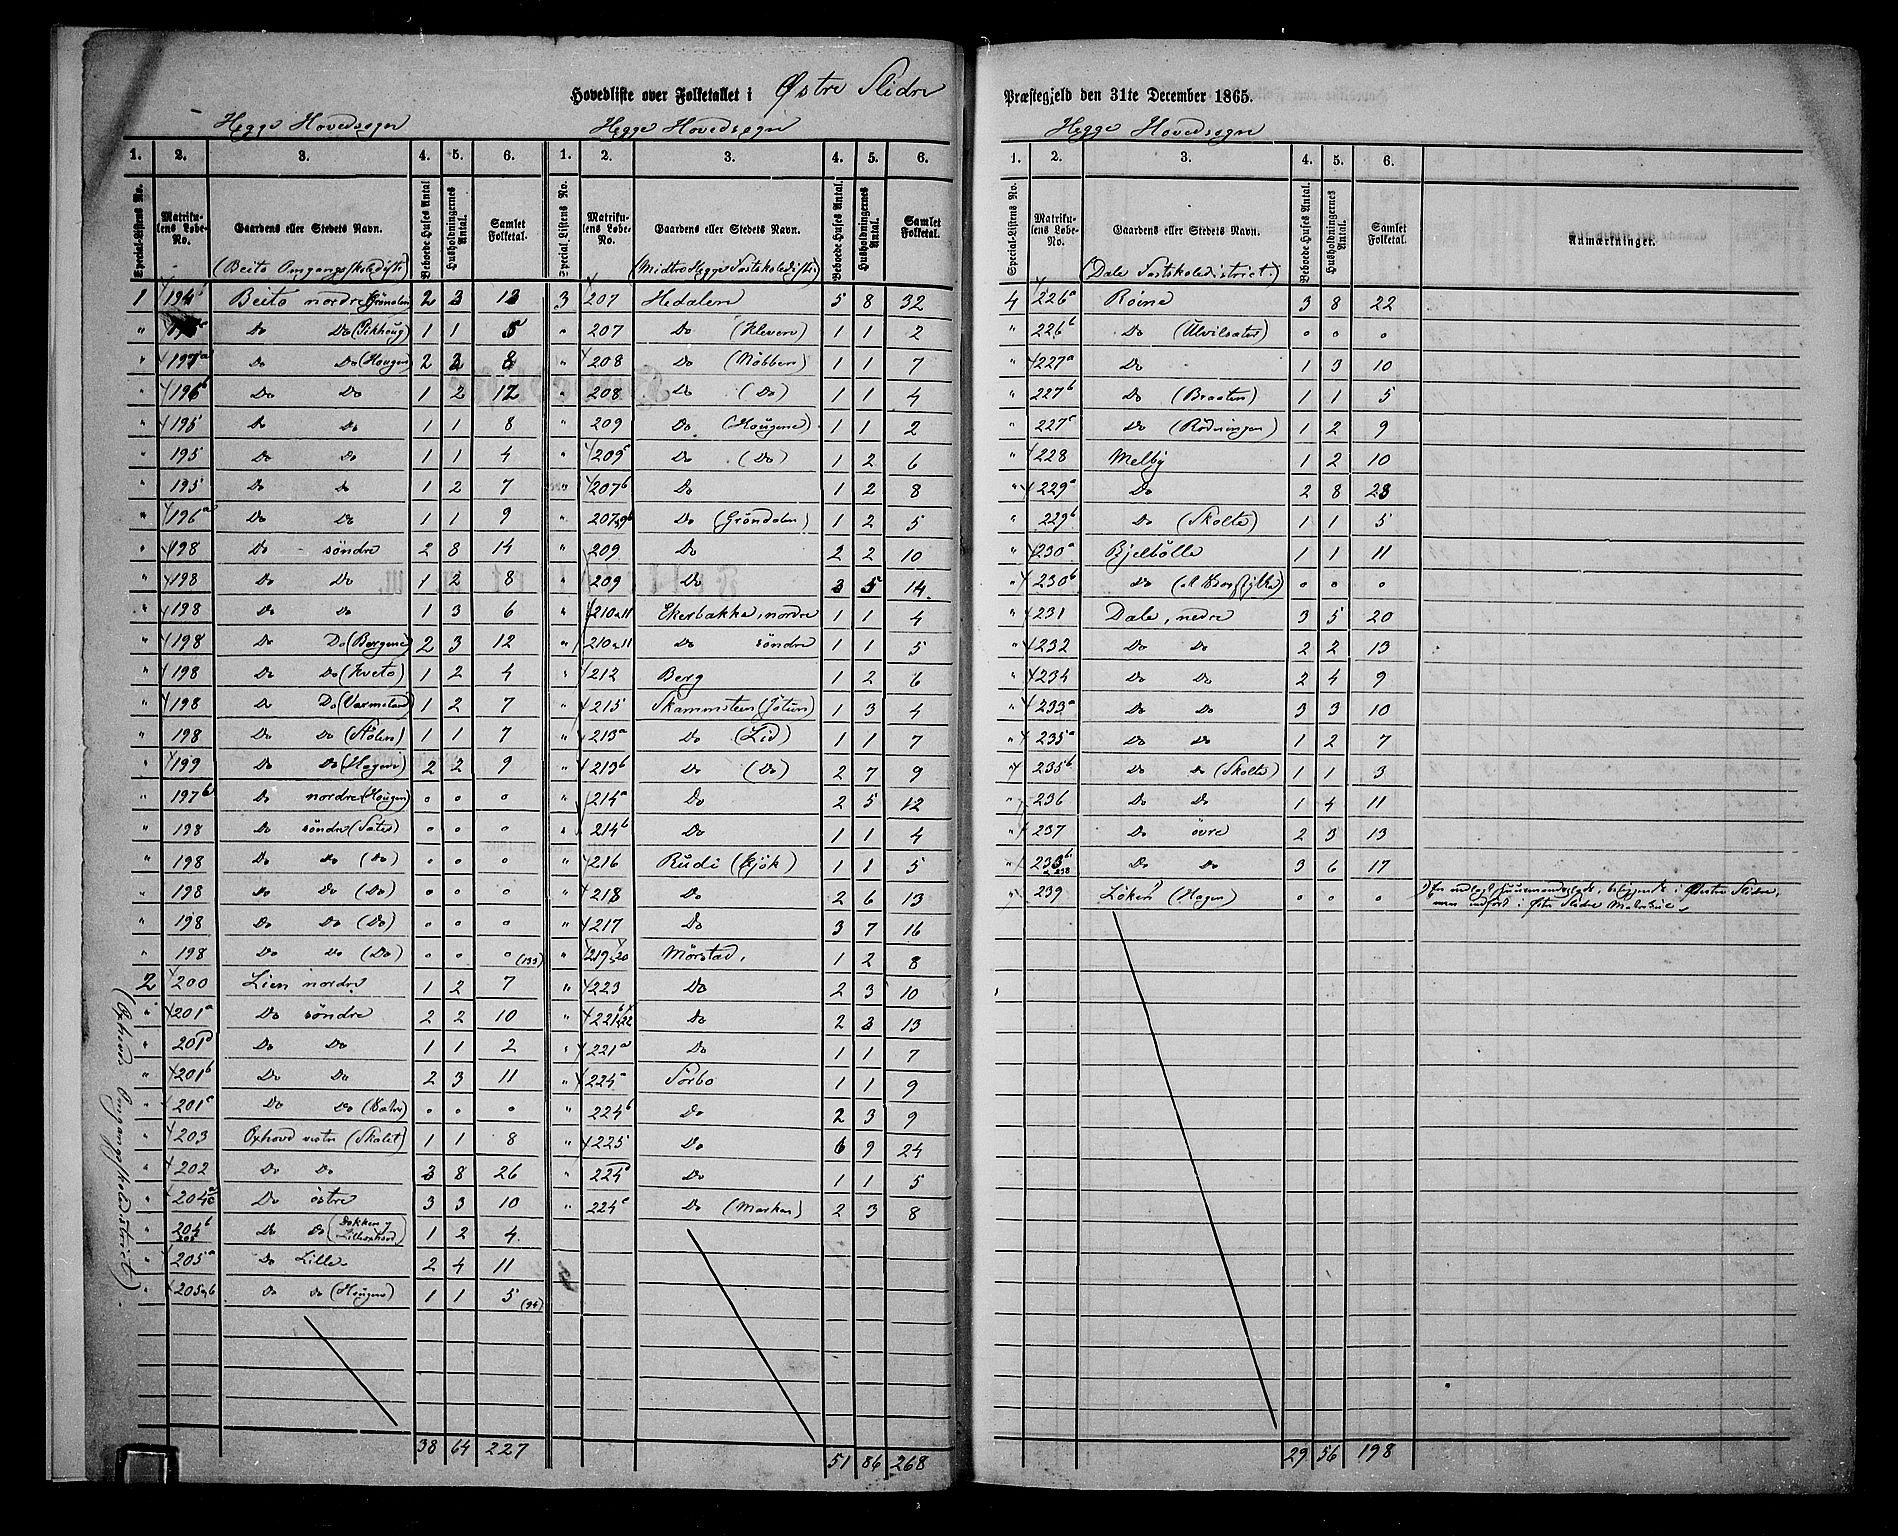 Hovedliste over Folketallet i Østre Slidre
Præstegjeld den 31te December 1865.
Hegge Hovedsogn
1. 2. 3. 4. 5. 6.
Special-Listens No. Matrikulens Løbe-No. Gaardens eller Stedets Navn. Beboede Huses Antal Husholdningernes Antal. Samlet Folketal.
(Beito Omgangsskoledistr.)
1 194 Beito nordre (Gröndalen) 2 3 13
" Do Do (Pikhoug) 1 1 5
" 197a Do Do (Hougen) 2 2 8
" 196b Do Do 1 2 12
" 195 Do Do 1 1 8
" 195 Do Do 1 1 4
" 195 Do Do 1 2 7
" 196a Do Do 1 1 9
" 198 Do søndre 2 8 14
" 198 Do Do 1 2 8
" 198 Do Do 1 3 6
" 198 Do Do (Bergene) 2 3 12
" 198 Do Do (Kveto) 1 2 4
" 198 Do Do 1 2 7
" 198 Do Do (Stölen) 1 1 7
" 199 Do Do (Hagen) 2 2 9
" 197b Do nordre (Hougen) o o o
" 198 Do söndre (Sater) o o o
" 198 Do Do (Do) o o o
" 198 Do Do (Do) o o o
" 198 Do Do (Do) o o o
" 198 Do Do (Do) o o o (133)
2 200 Lien nordre 1 2 7
" 201a Do söndre 2 2 10
" 201d Do Do 1 1 2
" 201b Do Do 2 3 11
" 201a Do Do o o o
" 203 Oxhovd vestre (Skolet) 1 1 8
" 202 Do Do 3 8 26
" 204 Do östre 3 3 10
" 204b Do Do 1 2 4
" 205a Do Lille 2 4 11
" 205b Do Do (Hougen) 1 1 5 (94)
(Oxhovd Omgangsskoledistrict).
38 64 227
Hegge Hovedsogn
1. 2. 3. 4. 5. 6.
Special Listens No. Matrikulens Løbe-No. Gaardens eller Stedets Navn. Beboede Huses Antal. Husholdningernes Antal. Samlet Folketal.
(Midtre Hegge Fastskoledistr.)
3 207 Hedalen 5 8 32
" 207 Do (Kleven) 1 1 2
" 208 Do (Möbben) 1 1 7
" 208 Do (Do) 1 1 4
" 209 Do (Hougene) 1 1 2
" 209 Do (Do) 1 2 6
" 207b Do 1 2 8
" 207 Do (Gröndalen) 1 2 5
" 209 Do 2 2 10
" 209 Do 3 5 14.
" 210 11 Ekerbakke, nordre 1 1 4
" 210 11 Do söndre 1 1 5
" 212 Berg 1 2 6
" 215 Skammsteen (Jötun) 1 3 4
" 213a Do (Lid) 1 1 7
" 213b Do (Do) 2 7 9
" 214a Do 2 5 12
" 214b Do 1 1 4
" 216 Rudi (Gjök) 1 1 5
" 218 Do 2 6 13
" 217 Do 3 7 16
" 219, 20 Mörstad, 1 2 8
" 223 Do 2 3 10
" 221b, 22 Do 2 3 13
" 221a Do 1 1 7
" 224a Sörbo 1 1 9
" 224b Do 2 3 9
" 225 Do 6 9 24
" 224 Do 1 1 5
" 224 Do (Marken) 2 3 8
51 86 268
Hegge Hovedsogn
1. 2. 3. 4. 5. 6.
Special-Listens No. Matrikulens Løbe-No. Gaardens eller Stedets Navn. Beboede Huses Antal. Husholdningernes Antal. Samlet Folketal. Anmærkninger.
(Dale Fastskoledistrict.)
4 226a Röine 3 8 22
" 226b Do (Ulvilsater) o o o
" 227a Do 1 3 10
" 227b Do (Braaten) 1 1 5
" 227c Do (Rödningen) 1 2 9
" 228 Melby 1 2 10
" 229a Do 2 8 23
" 229b Do (Skolte) 1 1 5
" 230a Bjelbölle 1 1 11
" 230b Do o o o
" 231 Dale, nedre 3 5 20
" 232 Do Do 2 2 13
" 234 Do Do 2 4 9
" 233a Do Do 3 3 10
" 235a Do Do 1 2 7
" 235b Do Do (Skolte) 1 1 3
" 236 Do Do 1 4 11
" 237 Do övre 2 3 13
" 233b 238 Do Do 3 6 17
" 239 Löken (Hagen) o o o men indfört i Østre Slidre
29 56 198